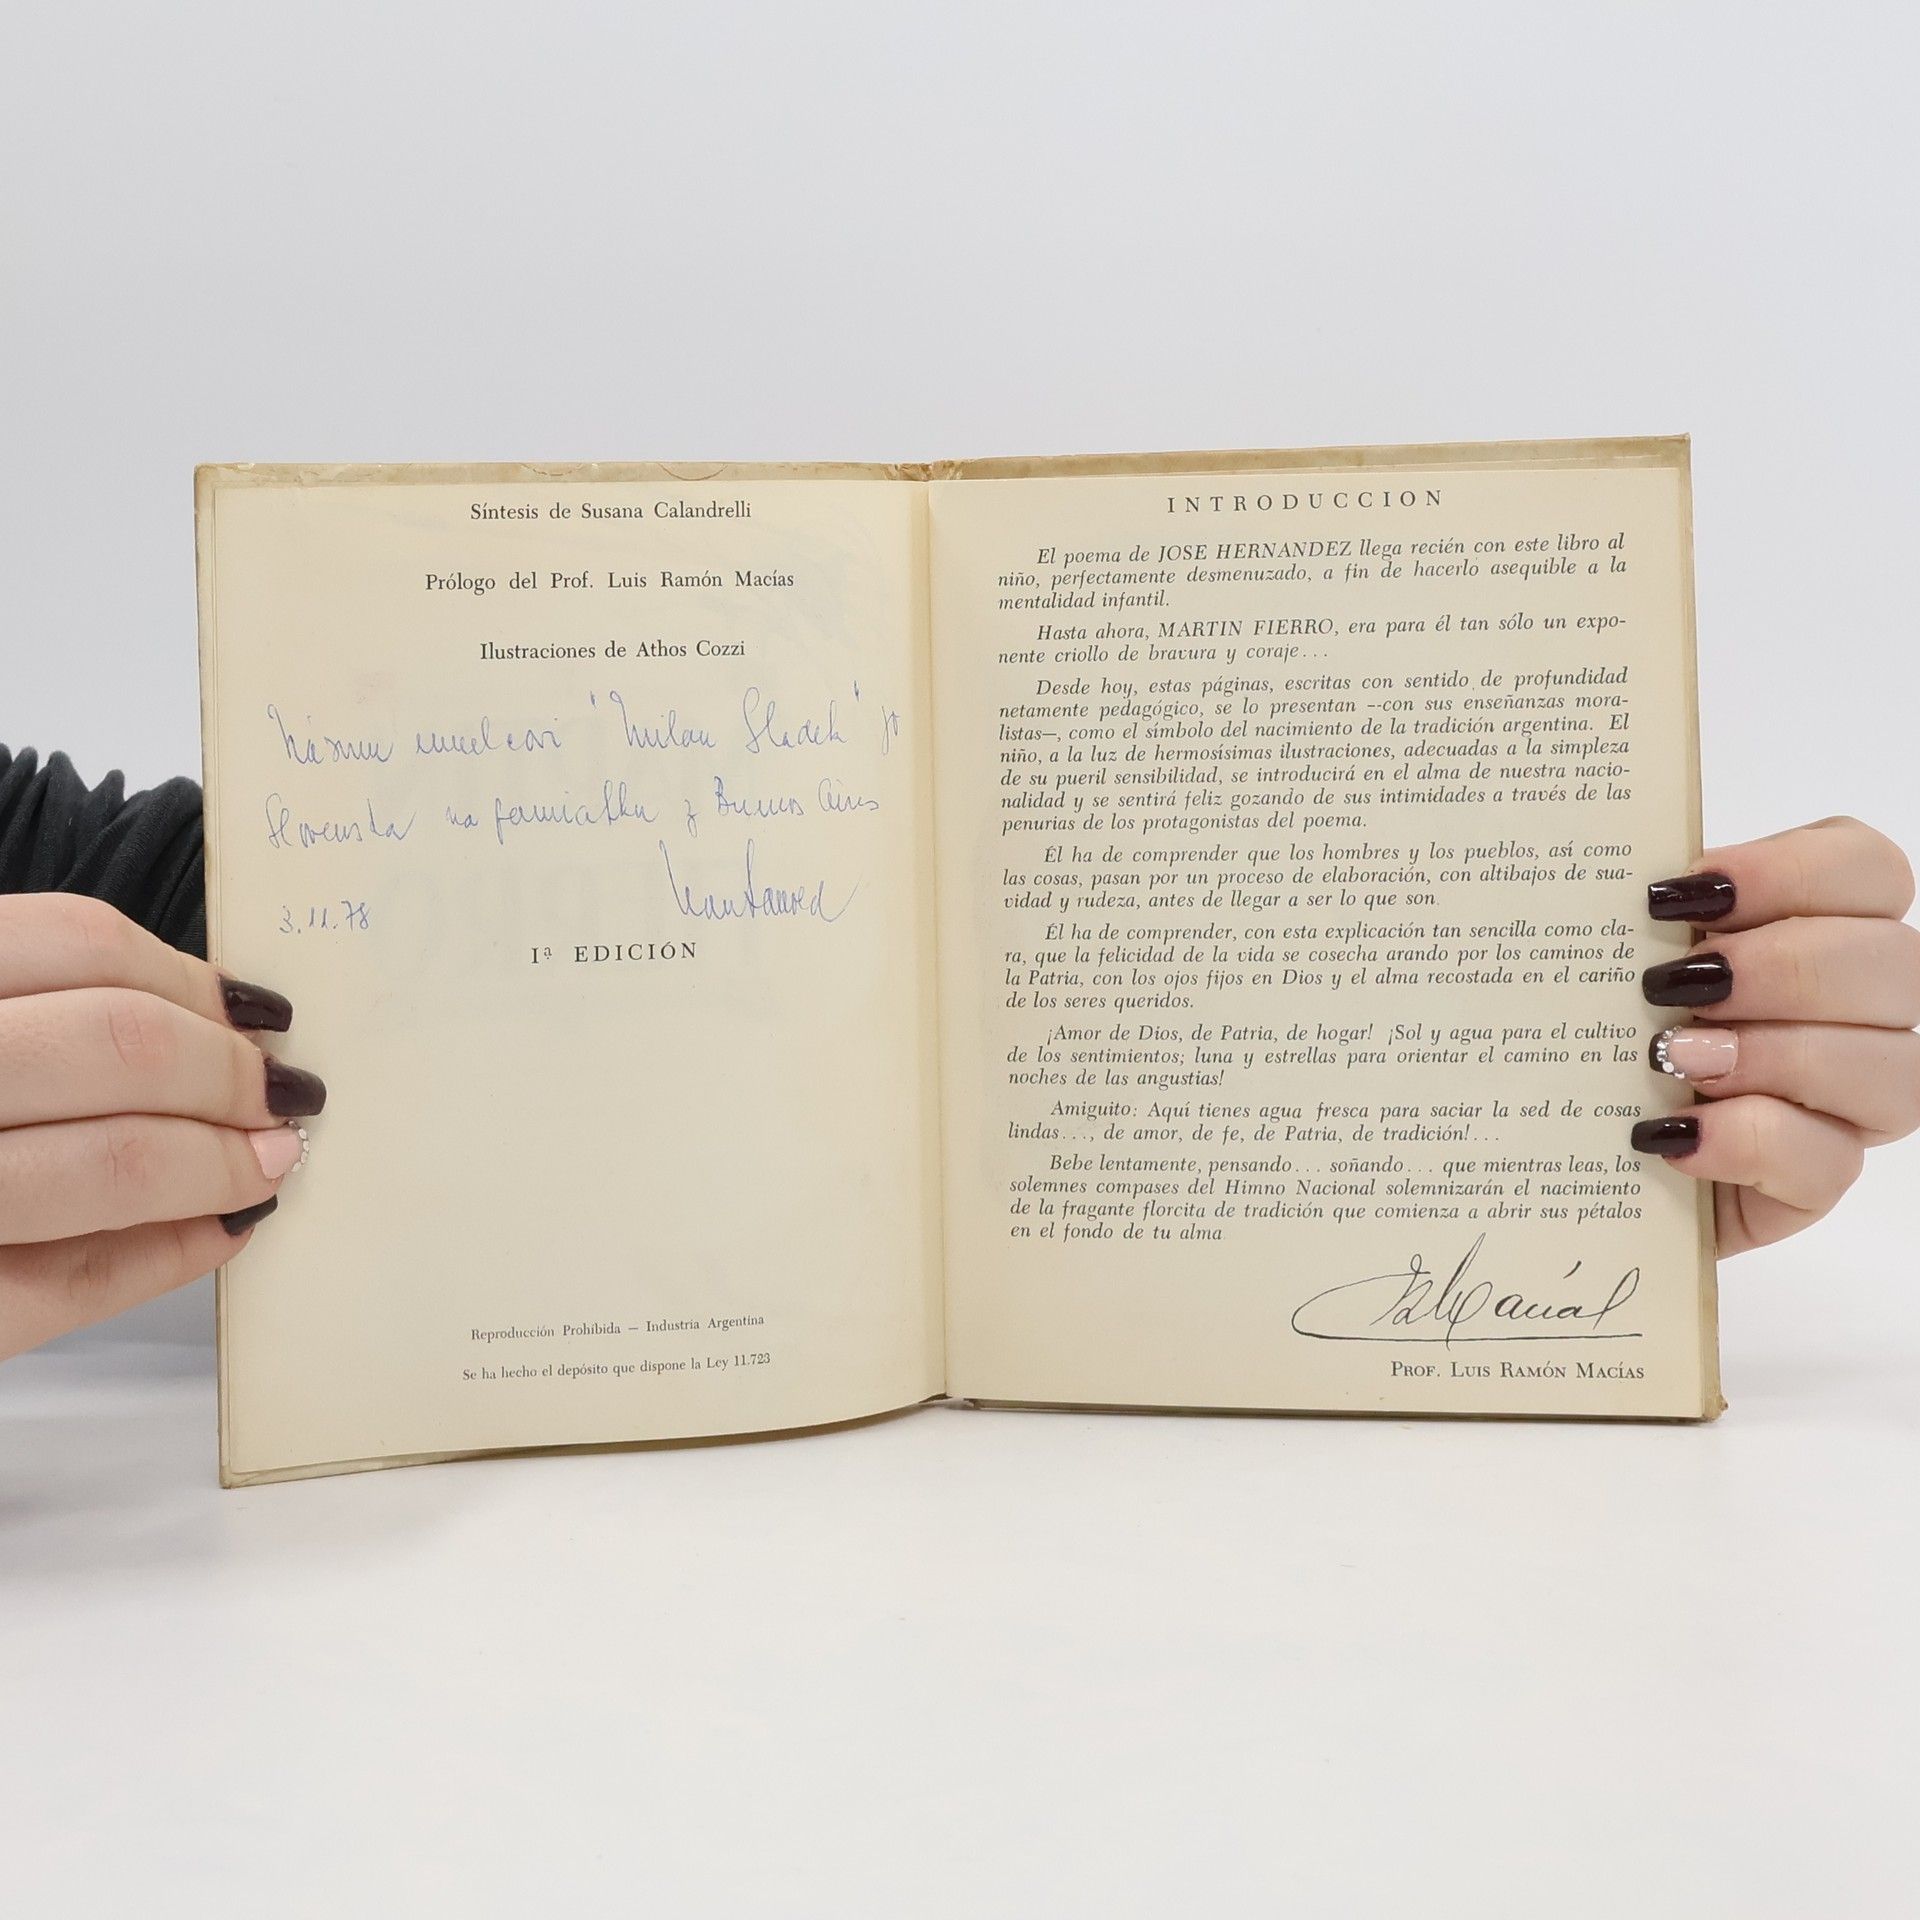 Síntesis de Susana Calandrelli
Prólogo del Prof. Luis Ramón Macías
Ilustraciones de Athos Cozzi
"Milan Sladek"
na pamiatku z Buenos Aires
3.11.78
1ª EDICIÓN
Reproducción Prohibida — Industria Argentina
Se ha hecho el depósito que dispone la Ley 11.723
INTRODUCCION
El poema de JOSE HERNANDEZ llega recién con este libro al
niño, perfectamente desmenuzado, a fin de hacerlo asequible a la
mentalidad infantil.
Hasta ahora, MARTIN FIERRO, era para él tan sólo un expo-
nente criollo de bravura y coraje...
Desde hoy, estas páginas, escritas con sentido de profundidad
netamente pedagógico, se lo presentan —con sus enseñanzas mora-
listas—, como el símbolo del nacimiento de la tradición argentina. El
niño, a la luz de hermosísimas ilustraciones, adecuadas a la simpleza
de su pueril sensibilidad, se introducirá en el alma de nuestra nacio-
nalidad y se sentirá feliz gozando de sus intimidades a través de las
penurias de los protagonistas del poema.
Él ha de comprender que los hombres y los pueblos, así como
las cosas, pasan por un proceso de elaboración, con altibajos de sua-
vidad y rudeza, antes de llegar a ser lo que son.
Él ha de comprender, con esta explicación tan sencilla como cla-
ra, que la felicidad de la vida se cosecha arando por los caminos de
la Patria, con los ojos fijos en Dios y el alma recostada en el cariño
de los seres queridos.
¡Amor de Dios, de Patria, de hogar! ¡Sol y agua para el cultivo
de los sentimientos; luna y estrellas para orientar el camino en las
noches de las angustias!
Amiguito: Aquí tienes agua fresca para saciar la sed de cosas
lindas..., de amor, de fe, de Patria, de tradición!...
Bebe lentamente, pensando... soñando... que mientras leas, los
solemnes compases del Himno Nacional solemnizarán el nacimiento
de la fragante florcita de tradición que comienza a abrir sus pétalos
en el fondo de tu alma
PROF. LUIS RAMÓN MACÍAS